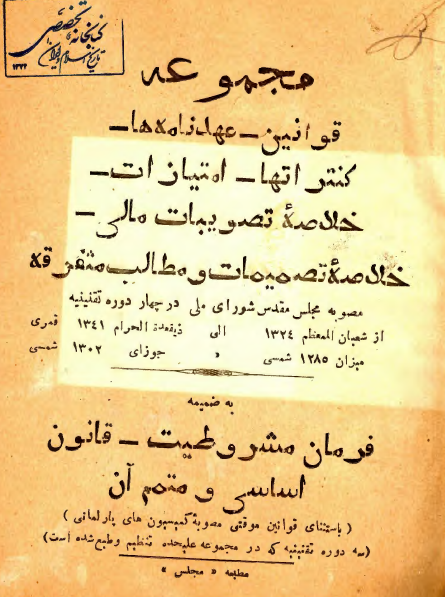 کتابخانه تخصصی
تاریخ اسلام و ایران
۱۳۷۴
مجموعه
قوانین ـ عهدنامه‌ها ـ
کنتراتها ـ امتیازات ـ
خلاصهٔ تصویبات مالی ـ
خلاصهٔ تصمیمات و مطالب متفرقه
مصوبه مجلس مقدس شورای ملی در چهار دوره تقنینیه
از شعبان المعظم ۱۳۲۴ الی ذیقعدة الحرام ۱۳۴۱ قمری
میزان ۱۲۸۵ شمسی » جوزای ۱۳۰۲ شمسی
به ضمیمه
فرمان مشروطیت ـ قانون
اساسی و متمم آن
( باستثنای قوانین موقتی مصوبهٔ کمیسیون های پارلمانی )
(سه دوره تقنینیه که در مجموعه علیحده تنظیم وطبع شده است)
مطبعه « مجلس »